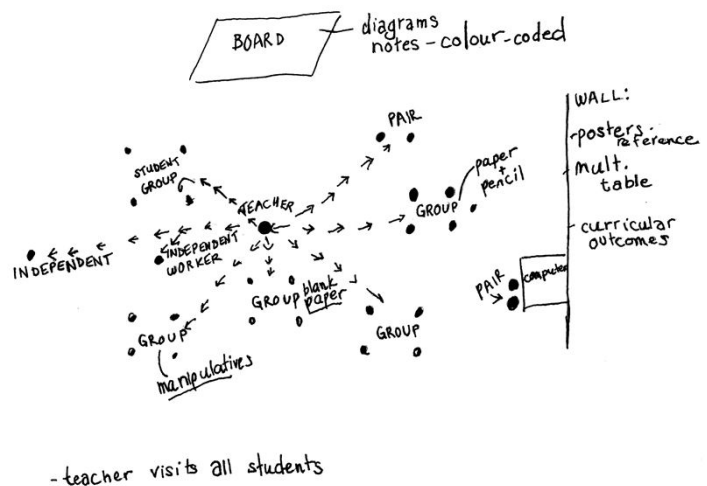 BOARD
diagrams
notes - colour-coded
WALL:
- posters -
reference
- mult.
table
- curricular
outcomes
PAIR
STUDENT
GROUP
TEACHER
paper
+
pencil
GROUP
INDEPENDENT
INDEPENDENT
WORKER
GROUP
blank
paper
PAIR
computer
GROUP
GROUP
manipulatives
- teacher visits all students